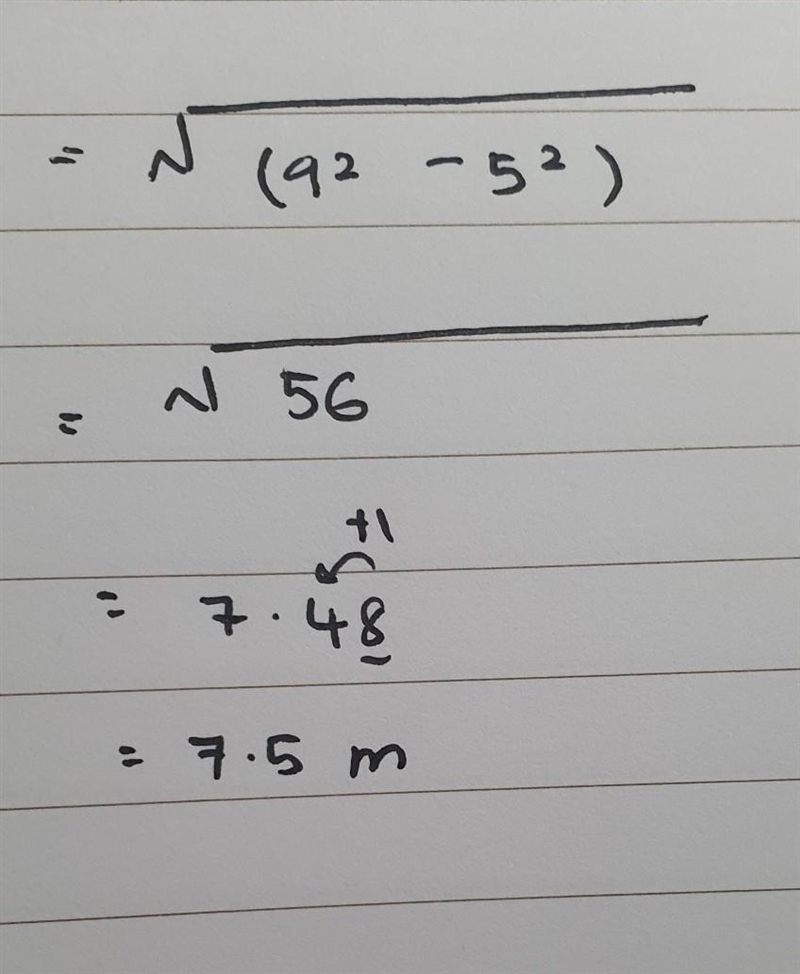 = √(9² - 5²)
= √56
+1
= 7.48
= 7.5 m